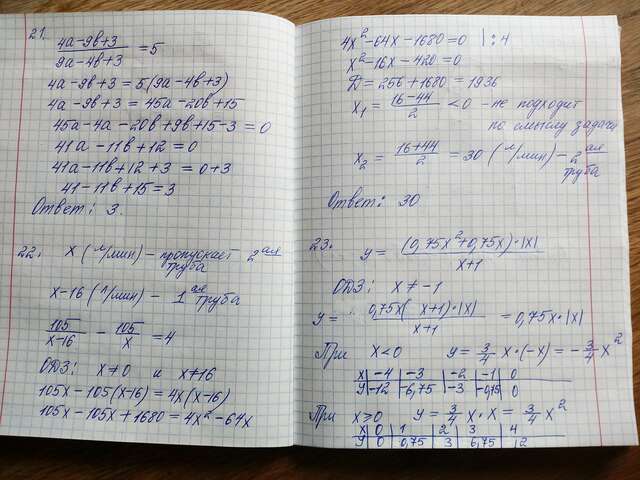 21.
(4a-9b+3)/(9a-4b+3) = 5
4a-9b+3 = 5(9a-4b+3)
4a-9b+3 = 45a-20b+15
45a-4a-20b+9b+15-3=0
41a-11b+12=0
41a-11b+12+3=0+3
41-11b+15=3
Ответ: 3.
22. х (л/мин) – пропускает 2ая труба
х-16 (л/мин) – 1ая труба
105/(х-16) - 105/х = 4
ОДЗ: х≠0 и х≠16
105х-105(х-16)=4х(х-16)
105х-105х+1680=4х²-64х
4х²-64х-1680=0 |:4
х²-16х-420=0
D=256+1680=1936
х₁ = (16-44)/2 <0 - не подходит
по смыслу задачи
х₂ = (16+44)/2 = 30 (л/мин) – 2ая труба
Ответ: 30
23. y = ((0,75x²+0,75x)·|x|)/(x+1)
ОДЗ: х ≠ -1
y = (0,75x(x+1)·|x|)/(x+1) = 0,75x·|x|
При x<0 y = 3/4 x·(-x) = -3/4 x²
x | -4 | -3 | -2 | -1 | 0
y | -12 | -6,75 | -3 | -0,75 | 0
При x≥0 y = 3/4 x·x = 3/4 x²
x | 0 | 1 | 2 | 3 | 4
y | 0 | 0,75 | 3 | 6,75 | 12